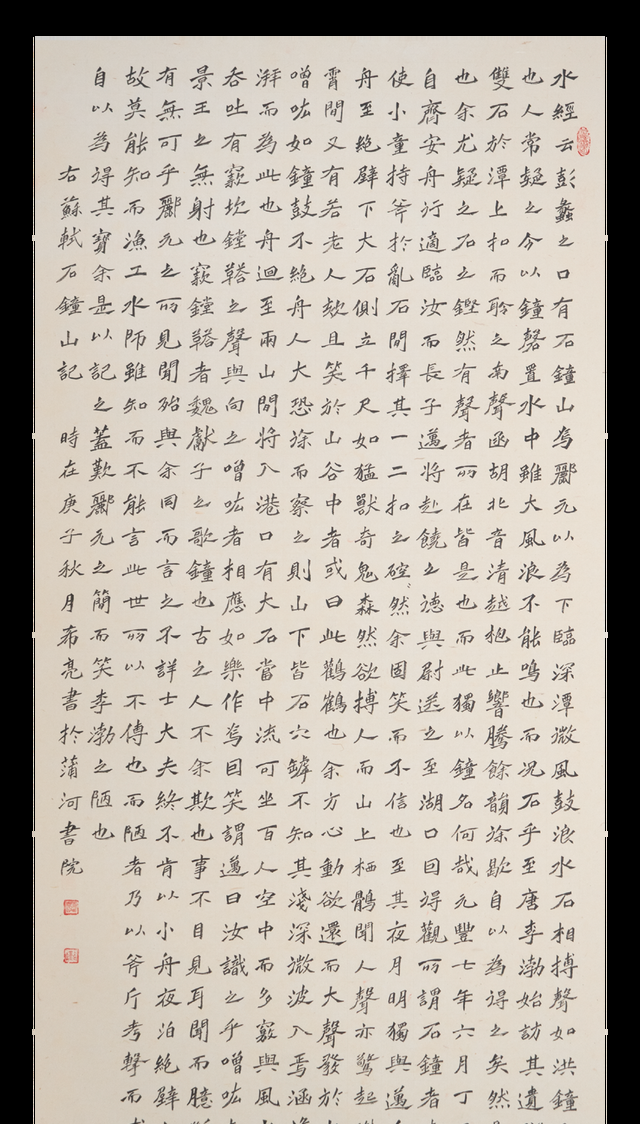 水經云彭蠡之口有石鐘山焉酈元以為下臨深潭微風鼓浪水石相搏聲如洪鐘
也人常疑之今以鐘磬置水中雖大風浪不能鳴也而況石乎至唐李渤始訪其遺
雙石於潭上扣而聆之南聲函胡北音清越枹止響騰餘韻徐歇自以為得之矣然
也余尤疑之石之鏗然有聲者所在皆是也而此獨以鐘名何哉元豐七年六月丁
自齊安舟行適臨汝而長子邁將赴饒之德興尉送之至湖口因得觀所謂石鐘者
使小童持斧於亂石間擇其一二扣之硿然余固笑而不信也至其夜月明獨與邁
舟至絕壁下大石側立千尺如猛獸奇鬼森然欲搏人而山上栖鶻聞人聲亦驚起
霄間又有若老人欬且笑於山谷中者或曰此鸛鶴也余方心動欲還而大聲發於
噌吰如鐘鼓不絕舟人大恐徐而察之則山下皆石穴罅不知其淺深微波入焉涵
湃而為此也舟迴至兩山間將入港口有大石當中流可坐百人空中而多竅與風
吞吐有窾坎鏜鞳之聲與向之噌吰者相應如樂作焉因笑謂邁曰汝識之乎噌吰
景王之無射也窾鏜鞳者魏獻子之歌鐘也古之人不余欺也事不目見耳聞而臆
有無可乎酈元之所見聞殆與余同而言之不詳士大夫終不肯以小舟夜泊絕壁
故莫能知而漁工水師雖知而不能言此世所以不傳也而陋者乃以斧斤考擊而
自以為得其實余是以記之蓋歎酈元之簡而笑李渤之陋也
右蘇軾石鐘山記 時在庚子秋月希亮書於蒲河書院